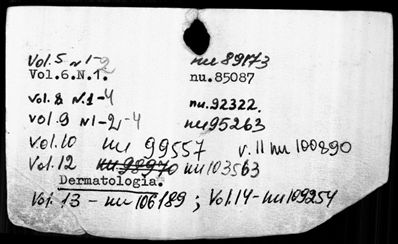 Vol.5 N 1-2 nu 89173
Vol.6.N.1. nu.85087
Vol. 8 N.1-4 nu.92322.
Vol.9 N1-2-4 nu 95263
Vol.10 nu 99557 v.11 nu 100890
Vol.12 nu 98970 nu 103563
Dermatologia.
Vol. 13 - nu 106189 ; Vol.14 - nu 109254